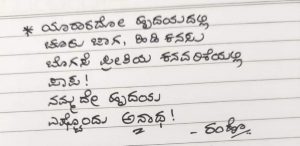 * ಯಾರಾದರೋ ಹೃದಯದಲ್ಲಿ
ಚೂರು ಜಾಗ, ಹಿಡಿ ಕನಸು
ಬೊಗಸೆ ಪ್ರೀತಿಯ ಕನವರಿಕೆಯಲ್ಲಿ
ಪಾಪ!
ನಮ್ಮದೇ ಹೃದಯ
ಎಷ್ಟೊಂದು ಅನಾಥ!